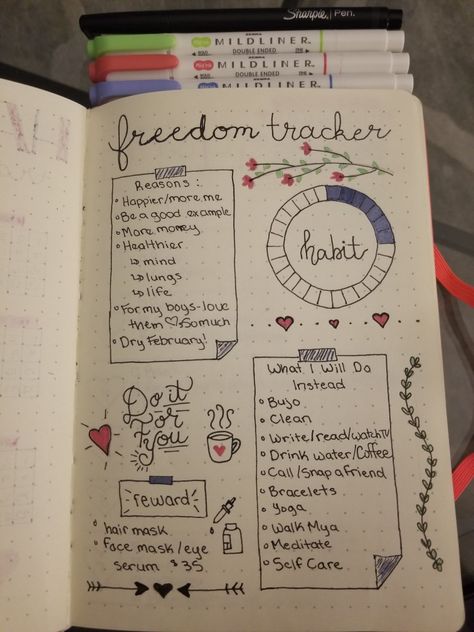 Sharpie. Pen.
MILDLINER
DOUBLE ENDED
MILDLINER
DOUBLE ENDED
MILDLINER
freedom tracker
Reasons :
Happier/more me
Be a good example
More money
Healthier
↳ mind
↳ lungs
↳ life
For my boys-love
them ♡ so much
Dry February!
habit
Do it
for
you
reward
hair mask
face mask/eye
serum $35
What I Will Do
Instead
Bujo
Clean
Write/read/watch TV
Drink water/Coffee
Call/Snap a friend
Bracelets
Yoga
Walk Mya
Meditate
Self Care